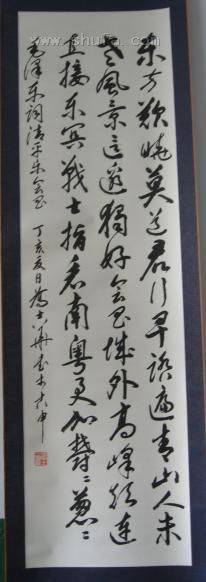 东方欲晓莫道君行早踏遍青山人未
老风景这边独好会昌城外高峰颠连
直接东溟战士指看南粤更加郁々葱々
毛泽东词清平乐会昌 丁亥夏日